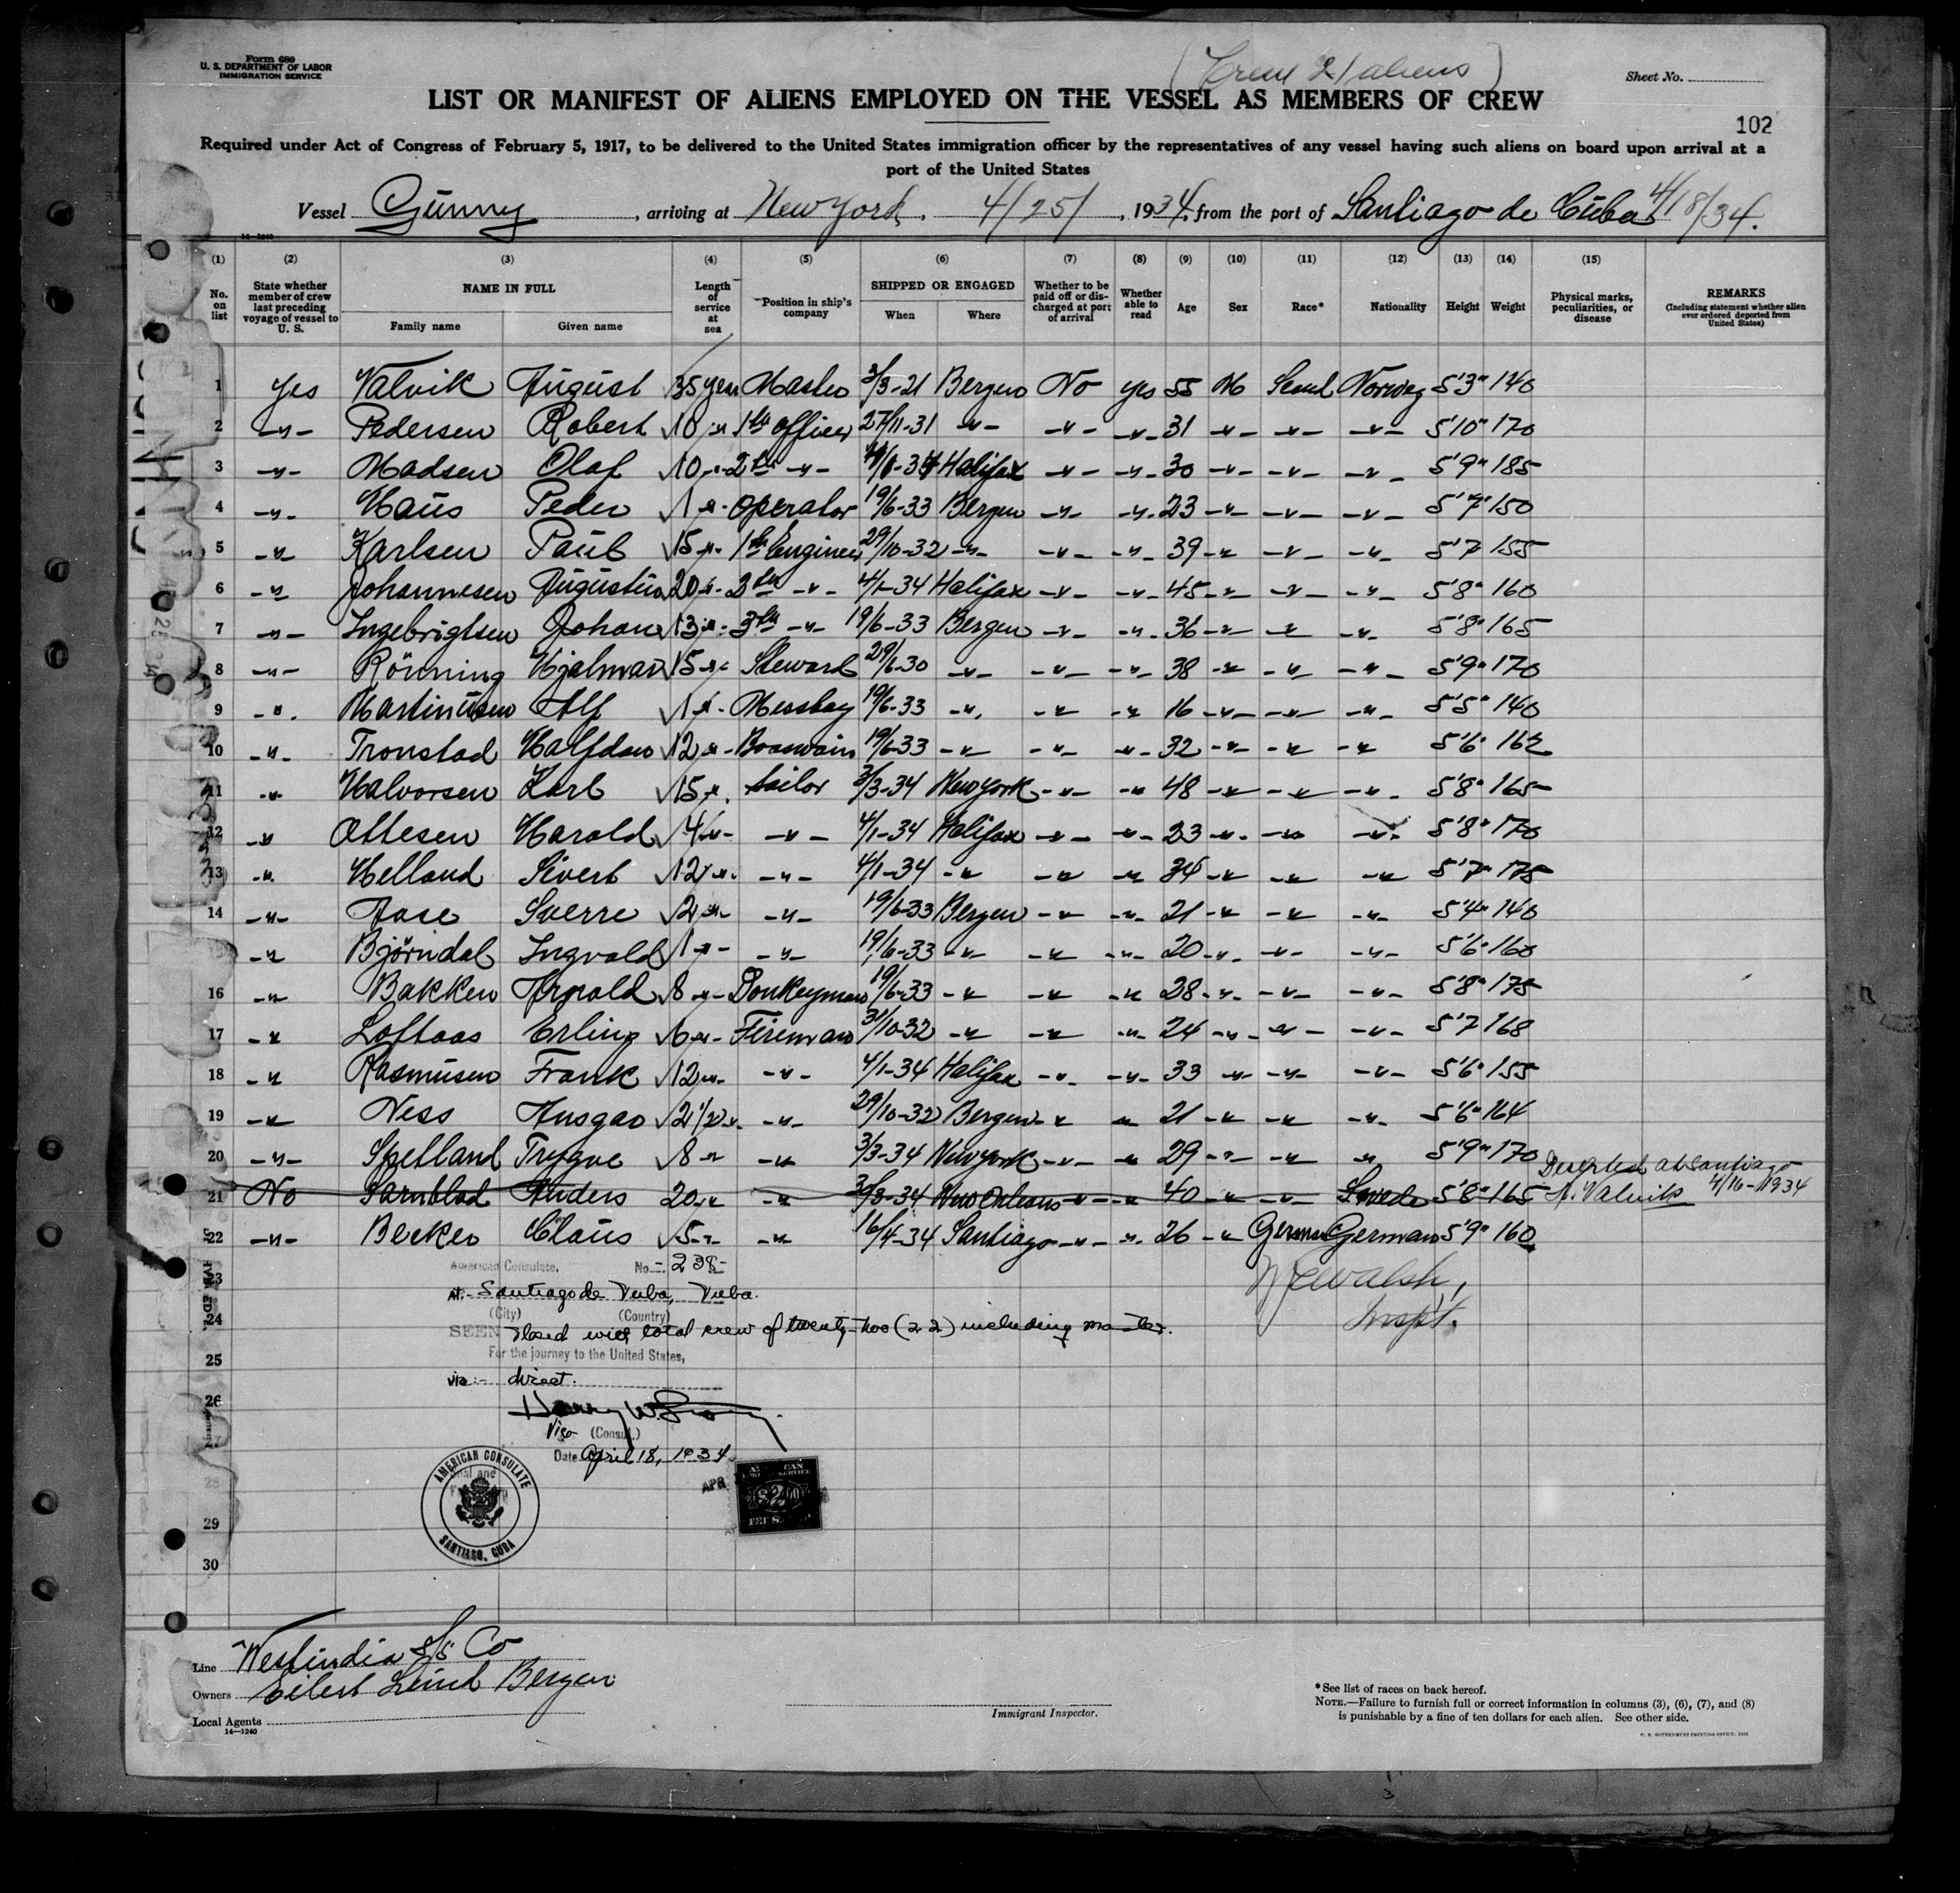 Form 680
U. S. DEPARTMENT OF LABOR
IMMIGRATION SERVICE
(Crew 21 aliens)
Sheet No.
LIST OR MANIFEST OF ALIENS EMPLOYED ON THE VESSEL AS MEMBERS OF CREW
102
Required under Act of Congress of February 5, 1917, to be delivered to the United States immigration officer by the representatives of any vessel having such aliens on board upon arrival at a
port of the United States
Vessel Gunny, arriving at New York, 4/25/, 1934, from the port of Santiago de Cuba 4/18/34.
14-1240
(1) (2) (3) (4) (5) (6) (7) (8) (9) (10) (11) (12) (13) (14) (15)
No. on list | State whether member of crew last preceding voyage of vessel to U. S. | NAME IN FULL Family name Given name | Length of service at sea | Position in ship's company | SHIPPED OR ENGAGED When Where | Whether to be paid off or discharged at port of arrival | Whether able to read | Age | Sex | Race* | Nationality | Height | Weight | Physical marks, peculiarities, or disease | REMARKS (Including statement whether alien ever ordered deported from United States)
1 Yes Valvik August 35 years Master 3/3-21 Bergen No yes 55 M Scand Norway 5'3" 140
2 -"- Pedersen Robert 10 -"- 1th officer 27/11-31 -"- -"- -"- 31 -"- -"- -"- 5'10" 170
3 -"- Madsen Olaf 10 -"- 2th -"- 4/1-34 Halifax -"- -"- 30 -"- -"- -"- 5'9" 185
4 -"- Haus Peder 1 -"- Operator 19/6-33 Bergen -"- -"- 23 -"- -"- -"- 5'7" 150
5 -"- Karlsen Paul 15 -"- 1th Engineer 29/10-32 -"- -"- -"- 39 -"- -"- -"- 5'7 155
6 -"- Johannesen Augustin 20 -"- 2th -"- 4/1-34 Halifax -"- -"- 45 -"- -"- -"- 5'8" 160
7 -"- Ingebrigtsen Johan 13 -"- 3th -"- 19/6-33 Bergen -"- -"- 36 -"- -"- -"- 5'8" 165
8 -"- Rönning Hjalmar 15 -"- Steward 29/6-30 -"- -"- -"- 38 -"- -"- -"- 5'9" 170
9 -"- Martinusen Alf 1 -"- Messboy 19/6-33 -"- -"- -"- 16 -"- -"- -"- 5'5" 140
10 -"- Tronstad Halfdan 12 -"- Boaswain 19/6-33 -"- -"- -"- 32 -"- -"- -"- 5'6" 162
11 -"- Halvorsen Karl 15 -"- Sailor 3/3-34 New York -"- -"- 48 -"- -"- -"- 5'8" 165
12 -"- Ottesen Harald 4 -"- -"- 4/1-34 Halifax -"- -"- 23 -"- -"- -"- 5'8" 170
13 -"- Helland Sivert 12 -"- -"- 4/1-34 -"- -"- -"- 34 -"- -"- -"- 5'7" 175
14 -"- Aase Sverre 2 -"- -"- 19/6-33 Bergen -"- -"- 21 -"- -"- -"- 5'4" 140
-"- Björndal Ingvald 1 -"- -"- 19/6-33 -"- -"- -"- 20 -"- -"- -"- 5'6" 160
16 -"- Bakken Arnold 8 -"- Donkeyman 19/6-33 -"- -"- -"- 28 -"- -"- -"- 5'8" 175
17 -"- Loftaas Erling 6 -"- Fireman 31/10-32 -"- -"- -"- 24 -"- -"- -"- 5'7 168
18 -"- Rasmusen Frank 12 -"- -"- 4/1-34 Halifax -"- -"- 33 -"- -"- -"- 5'6" 155
19 -"- Ness Ansgar 2 1/2 -"- -"- 29/10-32 Bergen -"- -"- 21 -"- -"- -"- 5'6" 164
20 -"- Spelland Trygve 8 -"- -"- 3/3-34 New York -"- -"- 29 -"- -"- " 5'9" 170
Deserted at Santiago
21 No Sarnblad Anders 20 -"- -"- New Orleans -"- -"- 40 -"- -"- Swede 5'8" 165 A. Valvik 4/16-1934
22 -"- Becker Claus 5 -"- -"- 16/4-34 Santiago -"- -"- 26 -"- German German 5'9" 160
American Consulate, No. - 238-
At. Santiago de Cuba, Cuba.
(City) (Country)
SEEN Closed with total crew of twenty-two (22) including master.
For the journey to the United States,
via:- direct.
Harry W.
Vice (Consul.)
Date April 18, 1934
Walsh,
Inspt.
23
24
25
26
28
29
30
AMERICAN CONSULATE
SANTIAGO, CUBA
APR
$2.00
Line Westindia S/S Co
Owners Eilert Lund Bergen
Local Agents
14-1240
Immigrant Inspector.
*See list of races on back hereof.
NOTE.—Failure to furnish full or correct information in columns (3), (6), (7), and (8)
is punishable by a fine of ten dollars for each alien. See other side.
U. S. GOVERNMENT PRINTING OFFICE